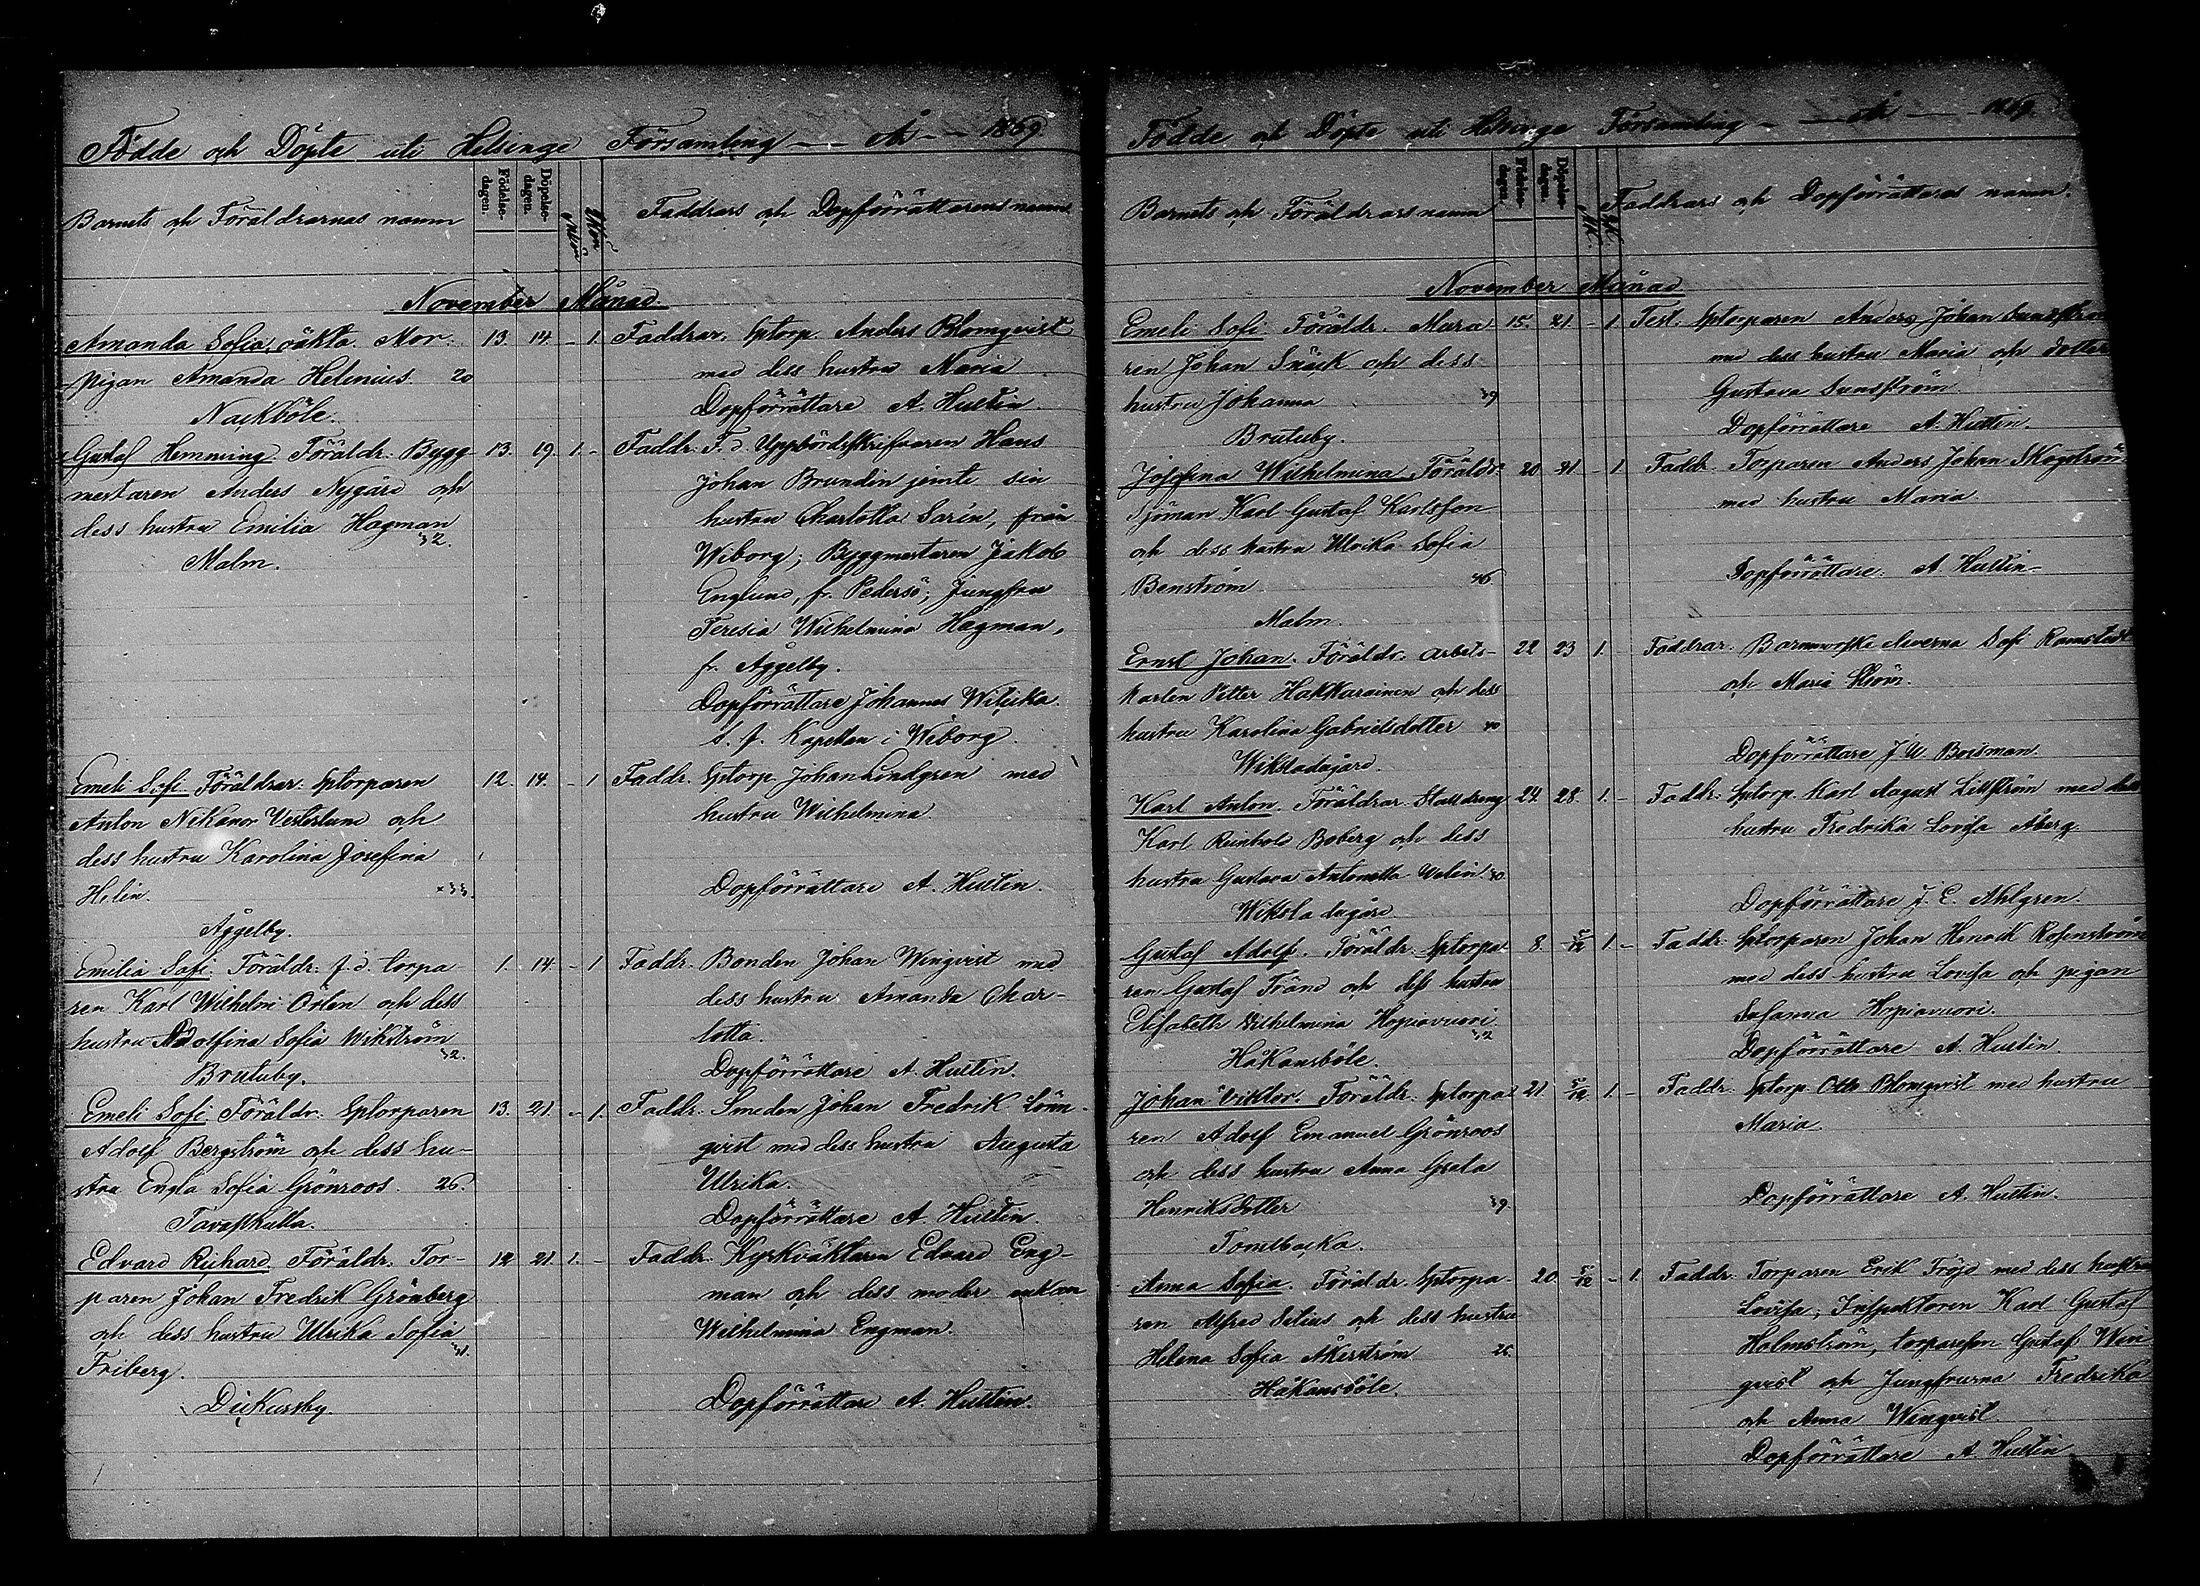 Födde och Döpte uti Helsinge Församling — År — 1869
Barnets och Föräldrarnas namn
Födelse-
dagen.
Döpelse-
dagen.
Kön
Faddrars och Dopförrättarens namn
November Månad
Amanda Sofia, oäkta. Mor: 13. 14. - 1. Faddrar: Sptorp. Anders Blomqvist
pigan Amanda Helenius. 20 med dess hustru Maria
Nackböle. Dopförrättare A. Hustin.
Gustaf Hemming Föräldr. Bygg- 13. 19. 1. - Faddr. F.d. Uppbördsskrifvaren Hans
mestaren Anders Nygård och Johan Brundin jemte sin
dess hustru Emilia Hagman 32. hustru Charlotta Sarin, från
Malm. Wiborg; Byggmestaren Jakob
Englund, fr. Pedersö; Jungfru
Teresia Wilhelmina Hagman,
fr. Åggelby.
Dopförrättare Johannes
t. f. Kapellan i Wiborg.
Emeli Sofi Föräldrar: Sptorparen 12. 14. - 1 Faddr. Sptorp. Johan Lindgren med
Anton Nikanor Vesterlund och hustru Wilhelmina
dess hustru Karolina Josefina
Helin. x33. Dopförrättare A. Hustin.
Åggelby.
Emilia Sofi Föräldr: f.d. torpa 1. 14. - 1 Faddr. Bonden Johan Winqvist med
ren Karl Wilhelm Orlen och dess dess hustru Amanda Char-
hustru Adolfina Sofia Wikström 32. lotta.
Brutuby. Dopförrättare A. Hustin.
Emeli Sofi Föräldr: Sptorparen 13. 21. - 1. Faddr. Smeden Johan Fredrik Lönn-
Adolf Bergström och dess hu- qvist med dess hustru Augusta
stru Engla Sofia Grönroos. 26. Ulrika.
Tavastkulla. Dopförrättare A. Hustin.
Edvard Richard Föräldr. Tor- 12 21. 1. - Faddr. Kyrkväktaren Edvard Eng-
paren Johan Fredrik Grönberg man och dess moder enkan
och dess hustru Ulrika Sofia 31. Wilhelmina Engman.
Friberg.
Dickursby. Dopförrättare A. Hustin.
Födde och Döpte uti Helsinge Församling — År — 1869.
Barnets och Föräldrars namn
Födelse-
dagen.
Döpelse-
dagen.
M.K.
Q.K.
Faddrars och Dopförrättares namn
November Månad
Emeli Sofi Föräldr. Mura 15. 21 - 1 Test. Sptorparen Anders Johan Sundström
ren Johan Snäck och dess med dess hustru Maria och dotter
hustru Johanna 39 Gustava Sundström
Brutuby. Dopförrättare A. Hustin.
Josefina Wilhelmina. Föräldr. 20. 21. - 1 Faddr. Torparen Anders Johan Skogström
Sjöman Karl Gustaf Karlsson med hustru Maria.
och dess hustru Ulrika Sofia
Benström 46 Dopförrättare: A. Hustin
Malm.
Ernst Johan. Föräldr. arbets- 22 23 1. - Faddrar. Barnmorske Sofi Ramstedt
karlen Petter Hakkarainen och dess och Maria Ström.
hustru Karolina Gabrielsdotter 40
Wiksladagård. Dopförrättare J. W. Boisman.
Karl Anton. Föräldrar. Stalldräng 24. 28. 1. - Faddr. Sptorp. Karl August Lillström med dess
Karl Reinhold Boberg och dess hustru Fredrika Lovisa Åberg.
hustru Gustava Antonetta Welin. 30
Wiksla dagård Dopförrättare J. E. Ahlgren.
Gustaf Adolf. Föräldr. Sptorpa 8. 5/12 1. - Faddr: Sptorparen Johan Henrik Rosenström
ren Gustaf Frånd och dess hustru med dess hustru Lovisa och pigan
Elisabeth Wilhelmina Hopiavuori. 32 Susanna Hopiavuori.
Håkansböle. Dopförrättare A. Hustin.
Johan Viktor. Föräldr: Sptorpa 21. 5/12 1. - Faddr. Sptorp. Otto Blomqvist med hustru
ren Adolf Emanuel Grönroos Maria
och dess hustru Anna Greta
Henriksdotter 39. Dopförrättare A. Hustin.
Tomtbacka.
Anna Sofia. Föräldr. Sptorpa- 20. 5/12 - 1. Faddr. Torparen Erik Fröjd med dess hustru
ren Alfred Silius och dess hustru Lovisa; Inspektoren Karl Gustaf
Helena Sofia Åkerström 26. Holmström, torpareson Gustaf Win
Håkansböle. qvist och Jungfrurna Fredrika
och Anna Winqvist
Dopförrättare A. Hustin